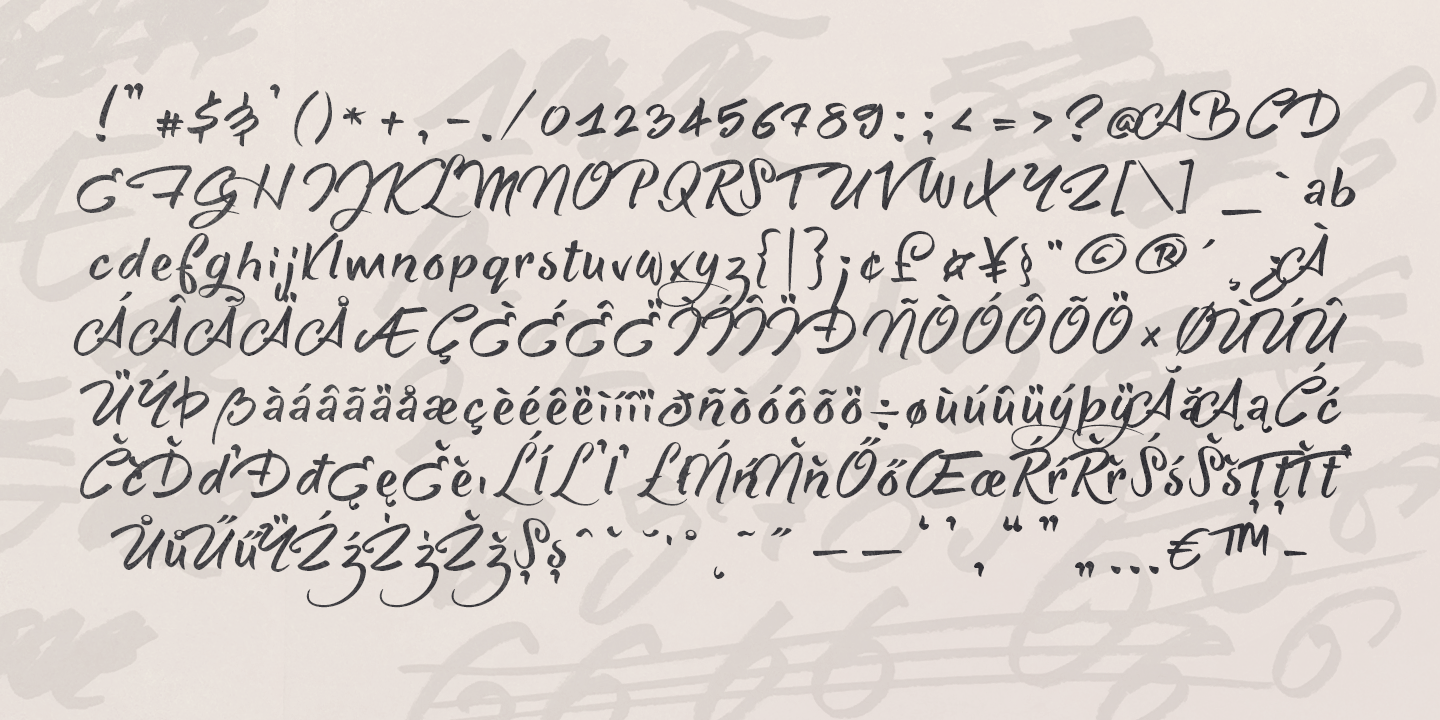 !"#$&'()*+,-./0123456789:;<=>?@ABCD
EFGHIJKLMNOPQRSTUVWXYZ[\]_`ab
cdefghijklmnopqrstuvwxyz{|}¡¢£¤¥§¨©®´¸¿À
ÁÂÃÄÅÆÇÈÉÊËÌÍÎÏÐÑÒÓÔÕÖ×ØÙÚÛ
ÜÝÞßàáâãäåæçèéêëìíîïðñòóôõö÷øùúûüýþÿĂăĄąĆć
ČčĎďĐđĘęĚěıĹĺĽľŁłŃńŇňŐőŒœŔŕŘřŚśŠšŢţŤť
ŮůŰűŸŹźŻżŽžȘșˆˇ˘˙˚˛˜˝–—‘’‚“”„…€™−